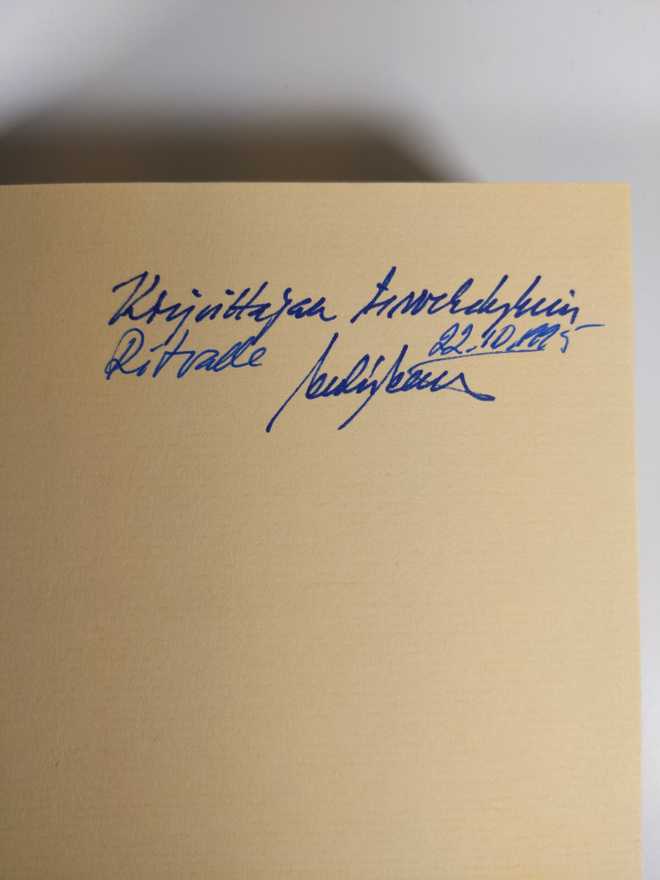 Kirjoittajan tervehdyksin
Ritvalle 22.10.1995